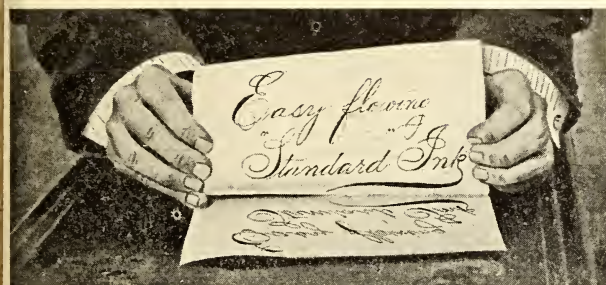 Easy flowing
"Standard" Ink